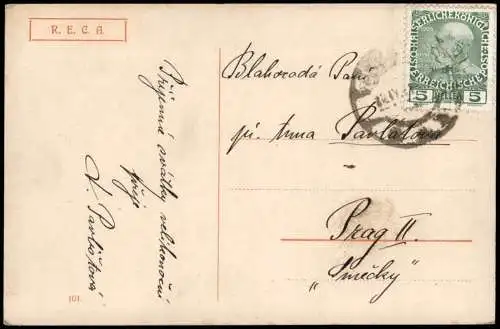 R. E. C. A.
Příjemné svátky velikonoční
přeje
A. Pavlištová
101.
Blahorodá Paní
Pavlatova
Prag II.
„Smečky"
KAISERLICHE KÖNIGL
ÖSTERREICHISCHE POST
5 HELLER 5